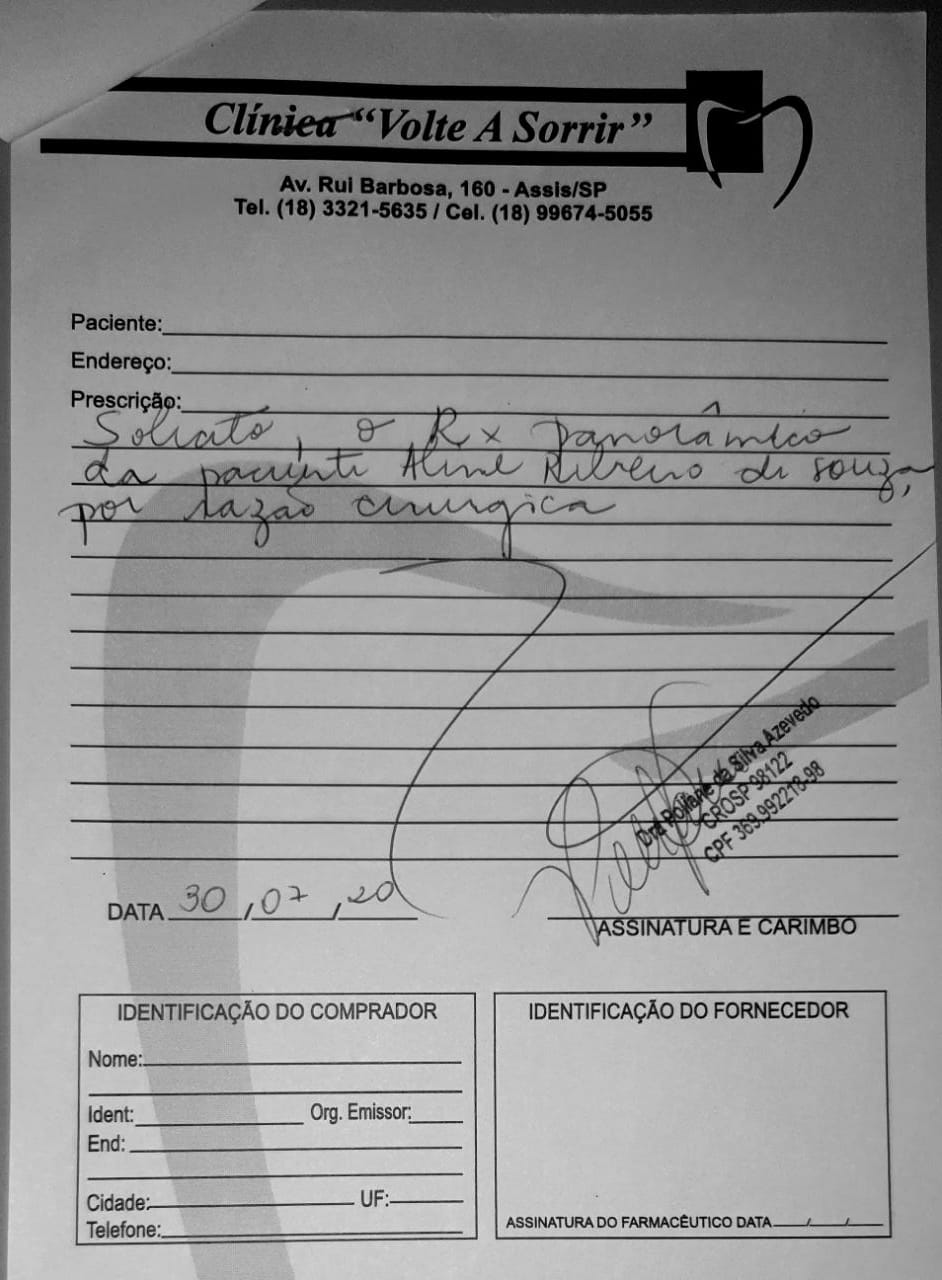 Clínica "Volte A Sorrir"
Av. Rui Barbosa, 160 - Assis/SP
Tel. (18) 3321-5635 / Cel. (18) 99674-5055
Paciente:
Endereço:
Prescrição:
Solicito, o Rx panorâmico
da paciente Aline Ribeiro de souza,
por razão cirurgica
Dra Poliane da Silva Azevedo
CROSP 98122
CPF 369.992218-98
DATA 30 / 07 / 20
ASSINATURA E CARIMBO
IDENTIFICAÇÃO DO COMPRADOR
Nome:
Ident: Org. Emissor:
End:
Cidade: UF:
Telefone:
IDENTIFICAÇÃO DO FORNECEDOR
ASSINATURA DO FARMACÊUTICO DATA / /